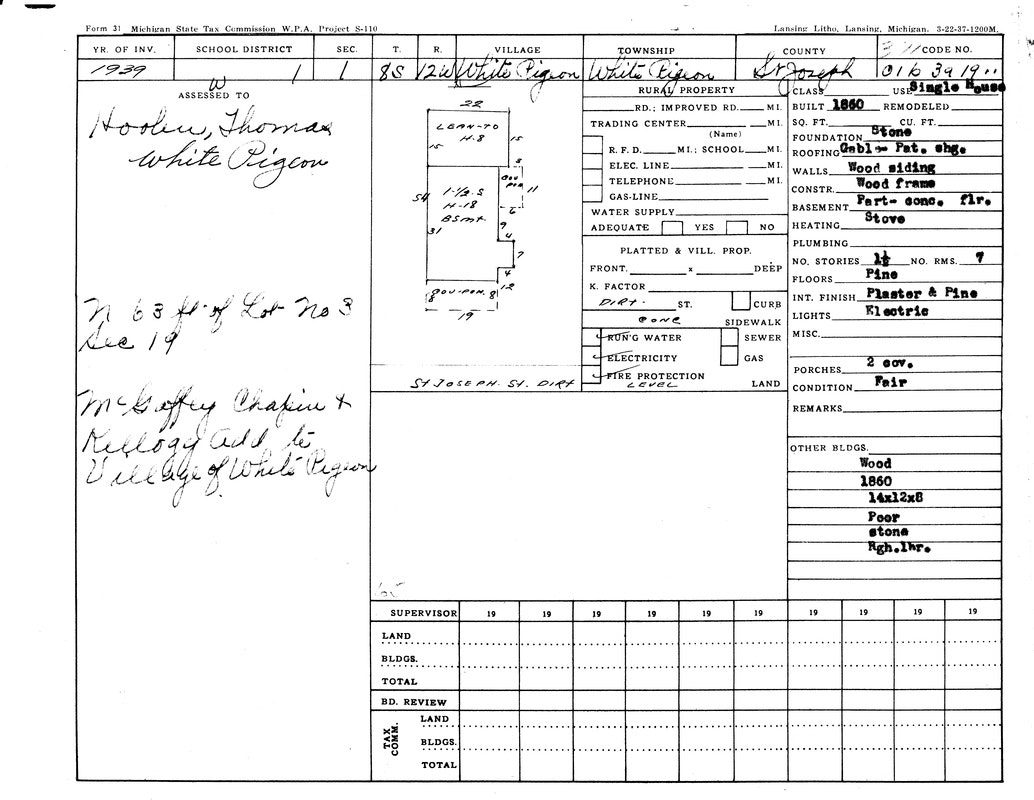 Form 31 Michigan State Tax Commission W.P.A. Project S-110
Lansing Litho, Lansing, Michigan. 3-22-37-1200M.
YR. OF INV. SCHOOL DISTRICT SEC. T. R. VILLAGE TOWNSHIP COUNTY CODE NO.
1939 W 1 1 8S 12W White Pigeon White Pigeon St Joseph 016 39 19 "
ASSESSED TO
Thomas
White Pigeon
N 63 ft of Lot No 3
Sec 19
McGaffey Chapin &
Kellogg Add to
Village of White Pigeon
22
LEAN-TO
H-8
15
15
8
COV
POR
11
54
1-1/2-S
H-18
BSMT.
6
31
9
4
7
4
12
8
COV-POR.
8
19
ST JOSEPH. ST. DIRT
RURAL PROPERTY
RD.; IMPROVED RD. MI.
TRADING CENTER MI.
(Name)
R. F. D. MI.; SCHOOL MI.
ELEC. LINE MI.
TELEPHONE MI.
GAS-LINE
WATER SUPPLY
ADEQUATE YES NO
PLATTED & VILL. PROP.
FRONT. x DEEP
K. FACTOR
DIRT. ST. CURB
CONC SIDEWALK
RUN'G WATER SEWER
ELECTRICITY GAS
FIRE PROTECTION
LEVEL LAND
CLASS USE Single House
BUILT 1860 REMODELED
SQ. FT. CU. FT.
FOUNDATION Stone
ROOFING Gable- Pat. shg.
WALLS Wood siding
CONSTR. Wood frame
BASEMENT Part- conc. flr.
HEATING Stove
PLUMBING
NO. STORIES 1½ NO. RMS. 7
FLOORS Pine
INT. FINISH Plaster & Pine
LIGHTS Electric
MISC.
PORCHES 2 cov.
CONDITION Fair
REMARKS
OTHER BLDGS.
Wood
1860
14x12x8
Poor
stone
Rgh.lbr.
SUPERVISOR 19 19 19 19 19 19 19 19 19 19
LAND
BLDGS.
TOTAL
BD. REVIEW
TAX COMM.
LAND
BLDGS.
TOTAL